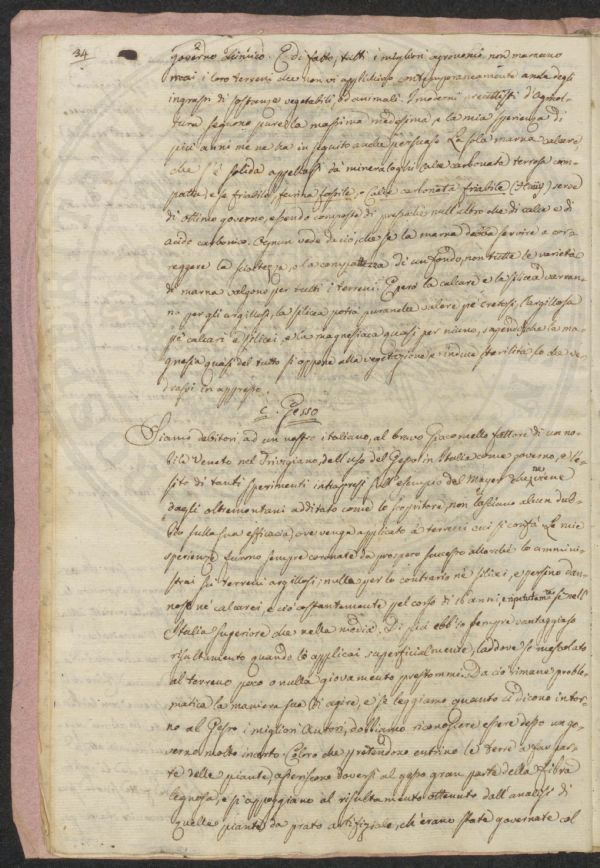 34
governo chimico. E di fatto, tutti i migliori agronomi non marnano
mai i loro terreni che non vi applichino contemporaneamente anche degli
ingrassi di sostanze vegetabili, od animali. I moderni d'Agricol-
tura seguono pure la massima medesima, e la mia sperienza di
più anni me ne ha in seguito anche persuaso. La sola marna calcare
che s'è solida appellasi da' mineraloghi calce carbonata terrosa com-
patta, e se friabile, farina fossile, o calce carbonata friabile (Haüy) serve
di ottimo governo, essendo composta di null'altro che di calce e di
acido carbonico. Ognun vede da ciò, che se la marna debba servire a cor-
reggere la scioltezza, o la compattezza di un fondo, non tutte le varietà
di marna valgono per tutti i terreni. E però la calcare e la silicea varran-
no per gli argillosi, la silicea potrà puranche valere pe' cretosi, l'argillosa
pe' calcari e silicei, e la magnesiaca quasi per niuno, sapendo che la ma-
gnesia quasi del tutto si oppone alla vegetazione e induce sterilità, lo che ve-
drassi in appresso.
C. Gesso
Siamo debitori, ad un nostro italiano, al bravo Giacomello fattore di un no-
bile Veneto nel Trivigiano, dell'uso del Gesso in Italia come governo, e l'e-
sito di tanti sperimenti intrapresi sull'esempio del Mayer
dagli oltremontani additato come lo scopritore, non lasciano alcun dub-
bio sulla sua efficacia, ove venga applicato a terreni cui si confà. Le mie
sperienze furono sempre coronate da prospero successo allorchè lo ammini-
strai su terreni argillosi; nulla per lo contrario ne' silicei, e persino dan-
nose ne' calcarei e ciò costantemente pel corso di anni, sì nell'
Italia superiore che nella media. Di più ebb'io sempre vantaggioso
risultamento quando lo applicai superficialmente, laddove se mescolato
al terreno poco o nulla giovamento prestommi. Da ciò rimane proble-
matica la maniera sua di agire, e se leggiamo quanto ci dicono intor-
no al Gesso i migliori Autori, dobbiamo riconoscere essere desso un go-
verno molto incerto. Coloro che pretendono entrino le terre a far par-
te delle piante, asseriscono doversi al gesso gran parte della fibra
legnosa, e si appoggiano al risultamento ottenuto dall'analisi di
quelle piante da prato artifiziale, ch'erano state governate col